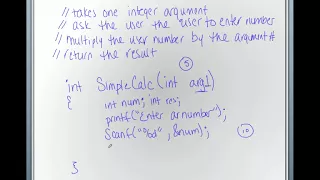 // takes one integer argument
// ask the user the user to enter number
// multiply the user number by the argument #
// return the result
5
int SimpleCalc (int arg1)
{ int num; int res;
printf("Enter a number");
Scanf("%d", &num); 10
}